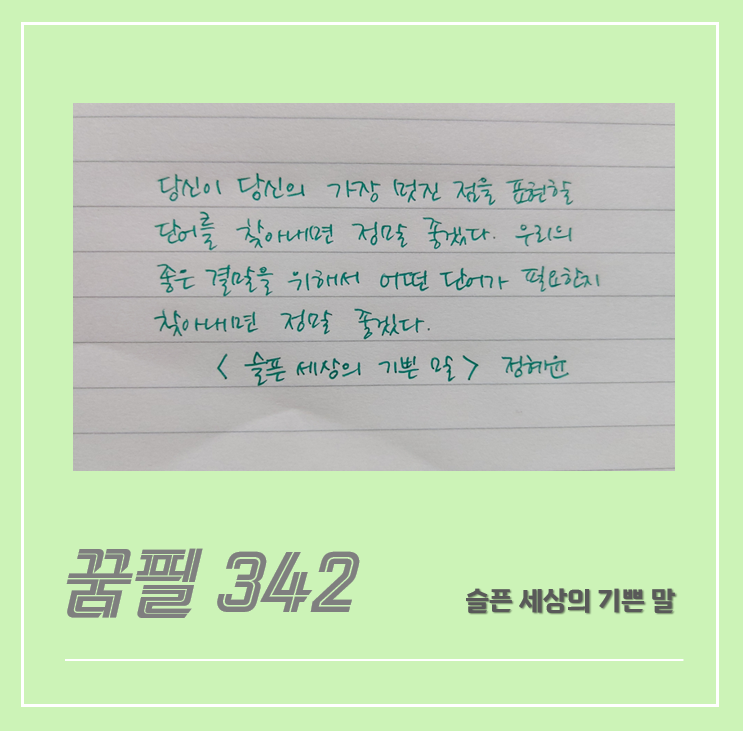 당신이 당신의 가장 멋진 점을 표현할
단어를 찾아내면 정말 좋겠다. 우리의
좋은 결말을 위해서 어떤 단어가 필요한지
찾아내면 정말 좋겠다.
< 슬픈 세상의 기쁜 말 > 정혜윤
꿈필 342
슬픈 세상의 기쁜 말